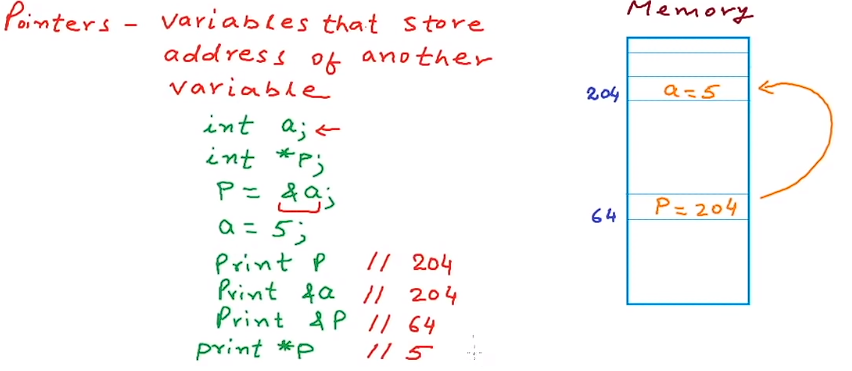 Pointers - variables that store
address of another
variable
int a; ←
int *p;
P = &a;
a = 5;
Print P // 204
Print &a // 204
Print &P // 64
print *p // 5
Memory
204 a=5
64 P=204